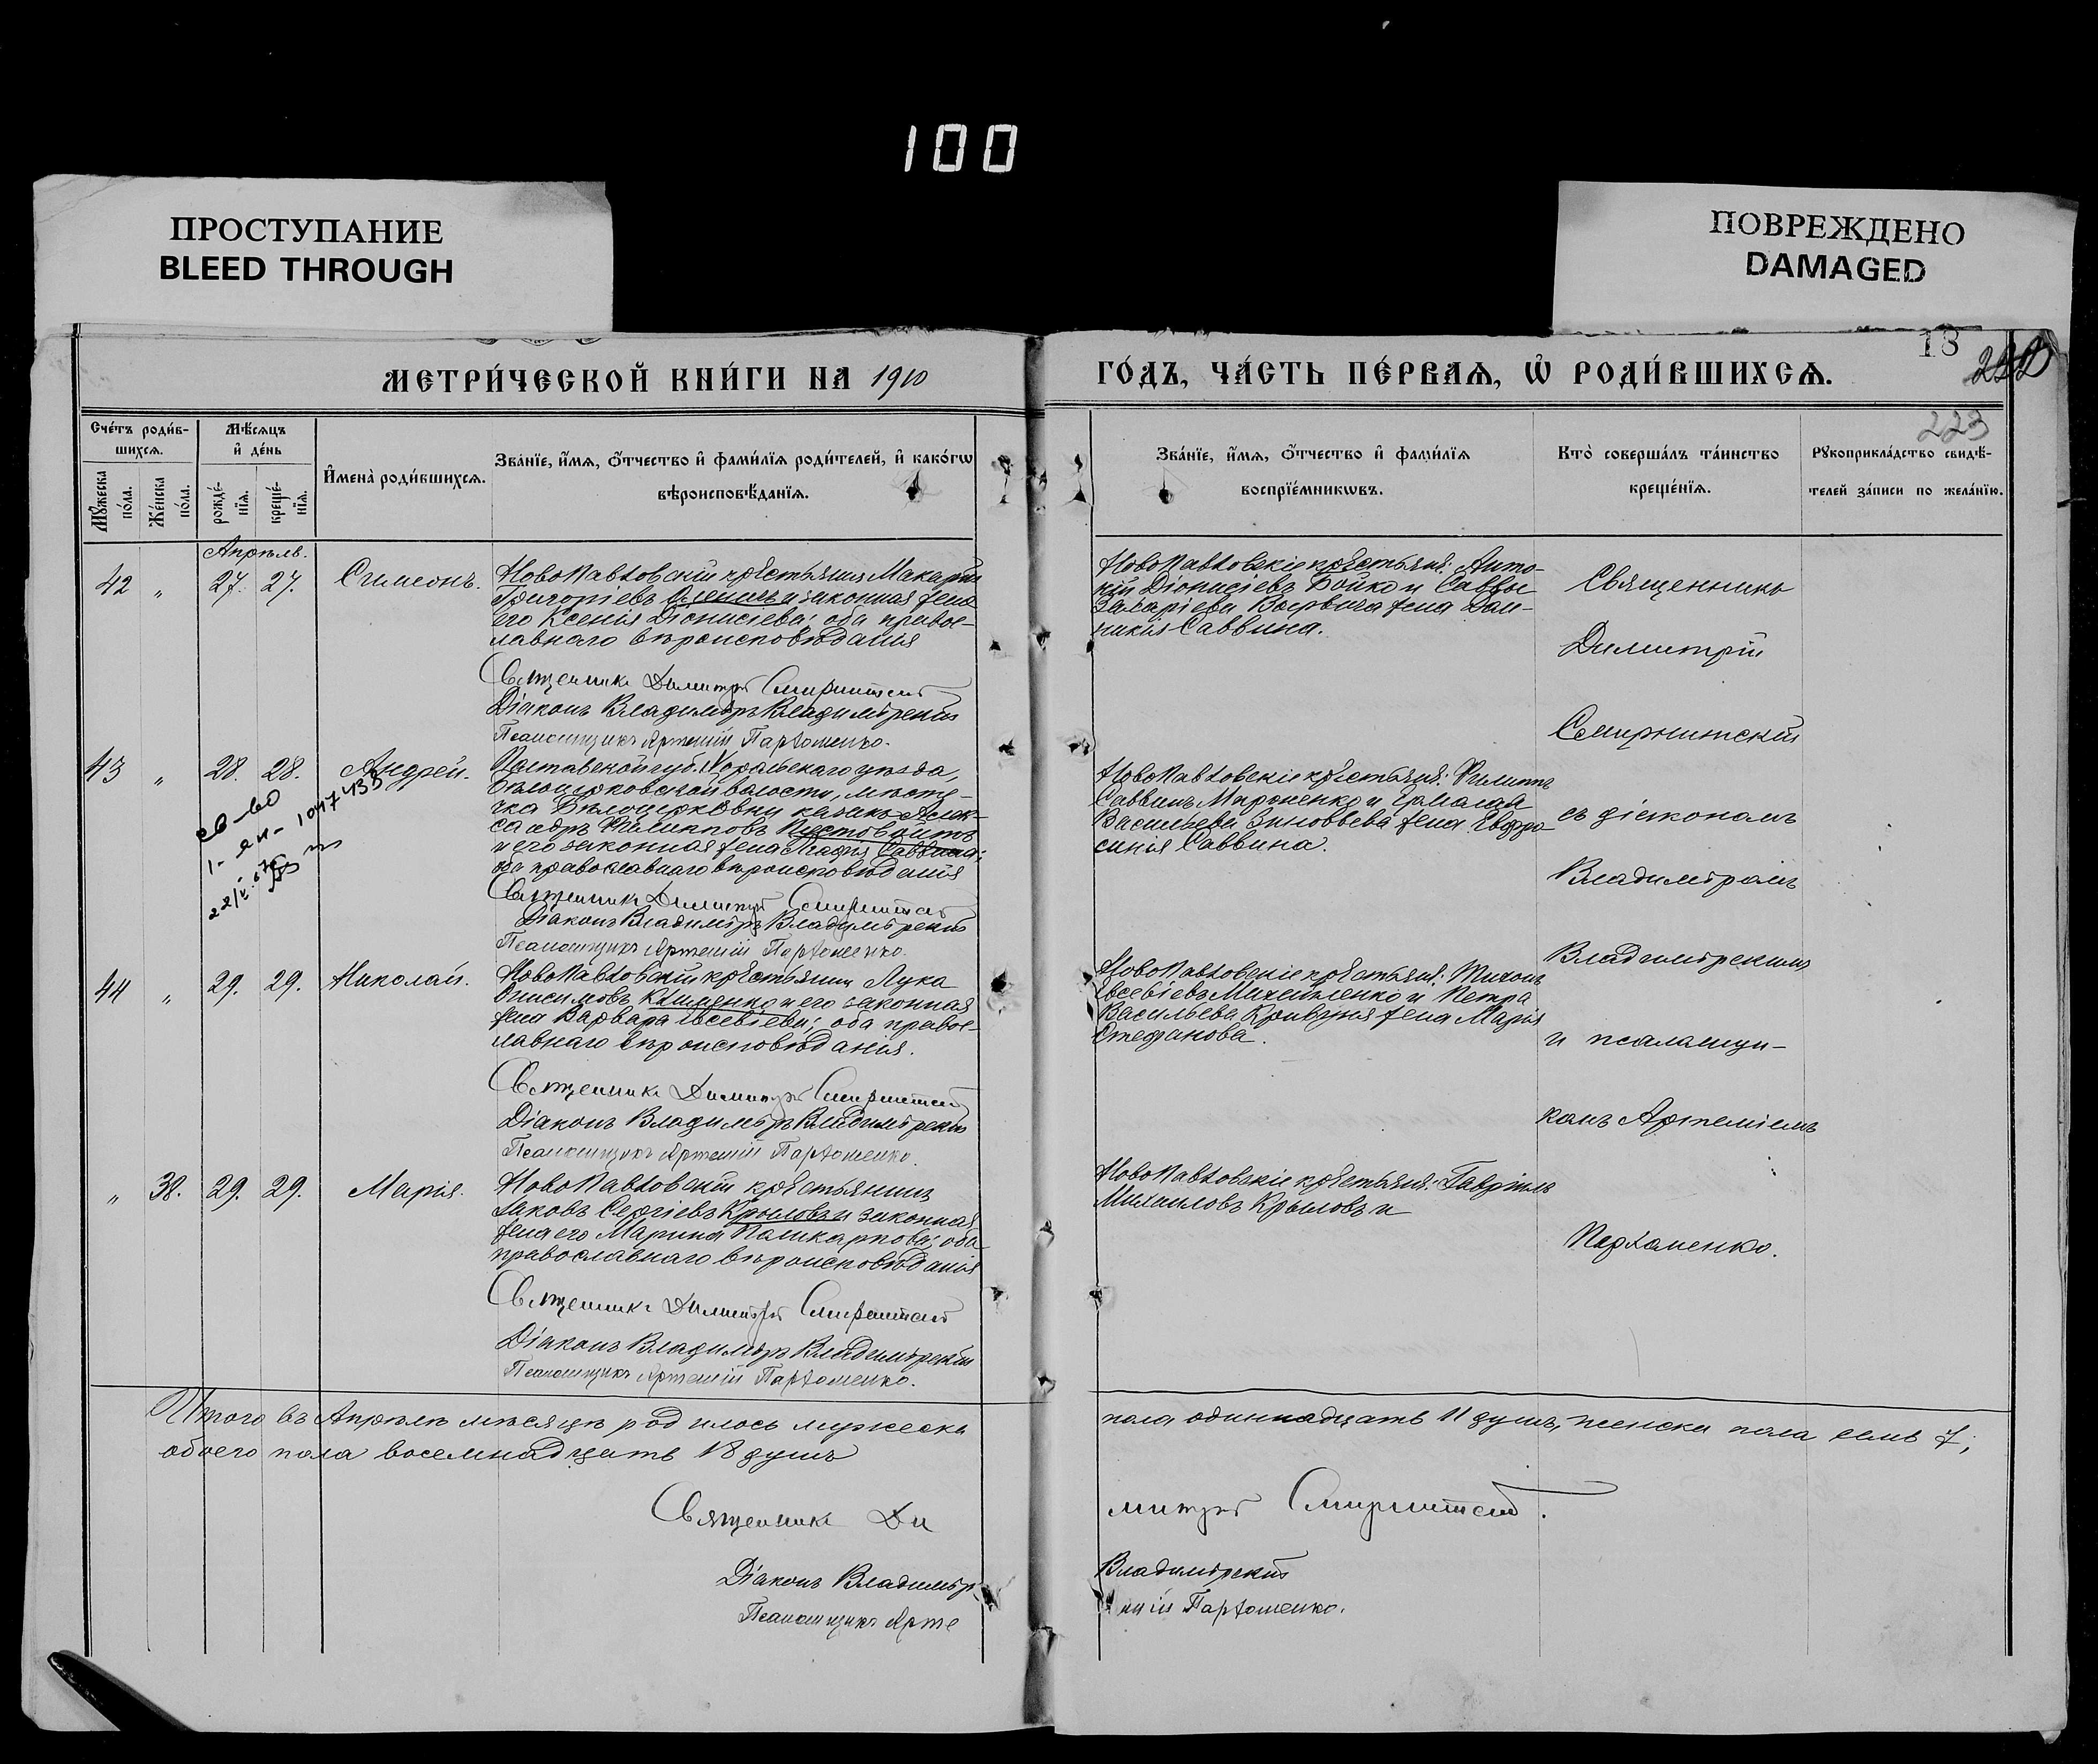 100
ПРОСТУПАНИЕ
BLEED THROUGH
ПОВРЕЖДЕНО
DAMAGED
18
223
МЕТРИ́ЧЕСКОЙ КНИ́ГИ НА 1910
ГО́ДЪ, ЧА́СТЬ ПЕ́РВАѦ, Ѡ҆ РОДИ́ВШИХСѦ.
Сче́тъ роди́в-
шихсѧ.
Мꙋ́жеска по́ла.
Же́нска по́ла.
Мѣ́сѧцъ
и҆ де́нь
рожде́-
нїѧ.
креще́-
нїѧ.
И҆мена̀ роди́вшихсѧ.
Зва́нїе, и҆́мѧ, ѻ҆́тчество и҆ фами́лїѧ роди́телей, и҆ како́гѡ
вѣроисповѣ́данїѧ.
Зва́нїе, и҆́мѧ, ѻ҆́тчество и҆ фами́лїѧ
воспрїе́мникѡвъ.
Кто̀ соверша́лъ та́инство
креще́нїѧ.
Рꙋкоприкла́дство свидѣ́-
телей за́писи по жела́нїю.
Апрѣль.
42 " 27. 27. Симеонъ.
Новопавловскій крестьянинъ Макарій
Григоріевъ и законная жена
его Ксенія Діонисіева; оба право-
славнаго вѣроисповѣданія
Священникъ Димитрій Смирнитскій
Діаконъ Владиміръ Владимірскій
Псаломщикъ Артемій Пархоменко.
Новопавловскіе крестьяне: Анто-
ній Діонисіевъ Бойко и Саввы
Захаріева жена Дом-
никія Саввина.
43 " 28. 28. Андрей.
Полтавской губ. уѣзда,
Бѣлоцерковской волости, мѣсте-
чка Бѣлоцерковки казакъ Алек-
сандръ Филипповъ Пустовойтъ
и его законная жена Саввина;
оба православнаго вѣроисповѣданія
Священникъ Димитрій Смирнитскій
Діаконъ Владиміръ Владимірскій
Псаломщикъ Артемій Пархоменко.
Новопавловскіе крестьяне: Филиппъ
Саввинъ Мироненко и Ермолая
Васильева Зиновьева жена Евфро-
синія Саввина.
св-во
44 " 29. 29. Николай.
Новопавловскій крестьянинъ Лука
Онисимовъ Клименко и его законная
жена Варвара Евсевіева; оба право-
славнаго вѣроисповѣданія.
Священникъ Димитрій Смирнитскій
Діаконъ Владиміръ Владимірскій
Псаломщикъ Артемій Пархоменко.
Новопавловскіе крестьяне: Тихонъ
Евсевіевъ Михайленко и Петра
Васильева жена Марія
Стефанова.
" 38. 29. 29. Марія.
Новопавловскій крестьянинъ
Іаковъ Сергіевъ Крыловъ и законная
жена его Марина Поликарпова; оба
православнаго вѣроисповѣданія
Священникъ Димитрій Смирнитскій
Діаконъ Владиміръ Владимірскій
Псаломщикъ Артемій Пархоменко.
Новопавловскіе крестьяне: Гавріилъ
Михаиловъ Крыловъ и
Священникъ
Димитрій
Смирнитскій
съ діакономъ
Владиміромъ
Владимірскимъ
и псаломщи-
комъ Артеміемъ
Пархоменко.
Итого въ Апрѣлѣ мѣсяцѣ родилось мужеска пола одиннадцать 11 душъ, женска пола семь 7;
обоего пола восемнадцать 18 душъ
Священникъ Димитрій Смирнитскій.
Діаконъ Владиміръ Владимірскій
Псаломщикъ Артемій Пархоменко.